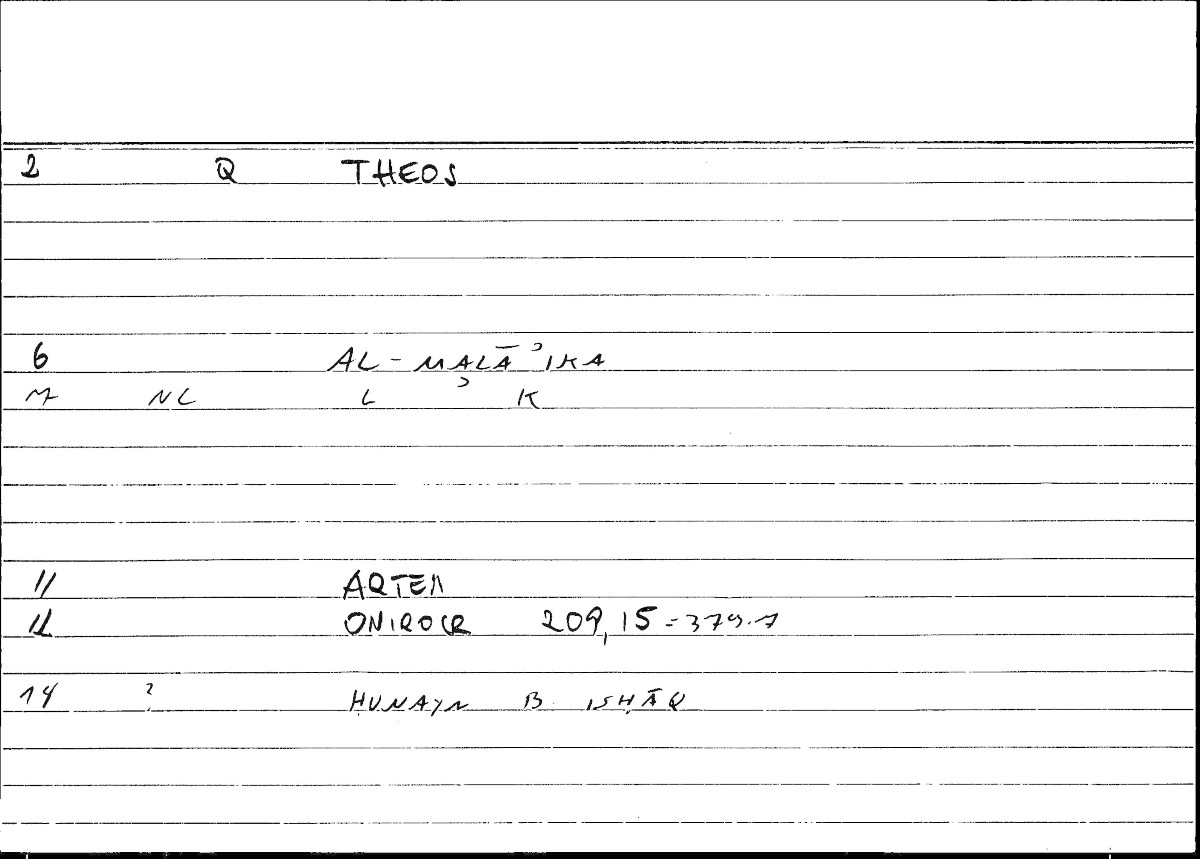 2 Q THEOS
6 AL-MALĀʾIKA
7 NL L ʾ K
11 ARTEM
12 ONIROCR 209,15 = 379.7
14 ? ḤUNAYN B ISḤĀQ